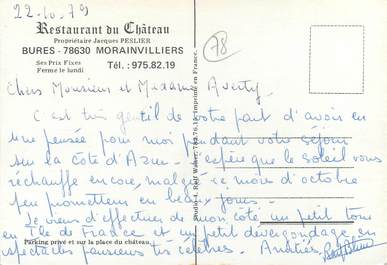 22-10-79
Restaurant du Château
Propriétaire Jacques PESLIER
BURES - 78630 MORAINVILLIERS
Ses Prix Fixes
Fermé le lundi
Tél. : 975.82.19
78
Chers Monsieur et Madame Averty.
C'est très gentil de votre part d'avoir eu
une pensée pour moi pendant votre séjour
sur la Côte d'Azur. J'espère que le soleil vous
réchauffe encore, malgré ce mois d'octobre
peu prometteur en beaux jours.
Je viens d'effectuer de mon côté un petit tour
en Ile de France et un petit dévergondage en
spectacles parisiens très célèbres. Amitiés,
Parking privé et sur la place du château.